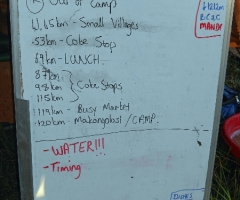 Out of Camp
41.65km - Small Villages
53km - Coke Stops
69km - LUNCH
87km
98km } Coke Stops
115km
119km - Busy Market
120km - Makongolosi / CAMP
- WATER!!!
- Timing